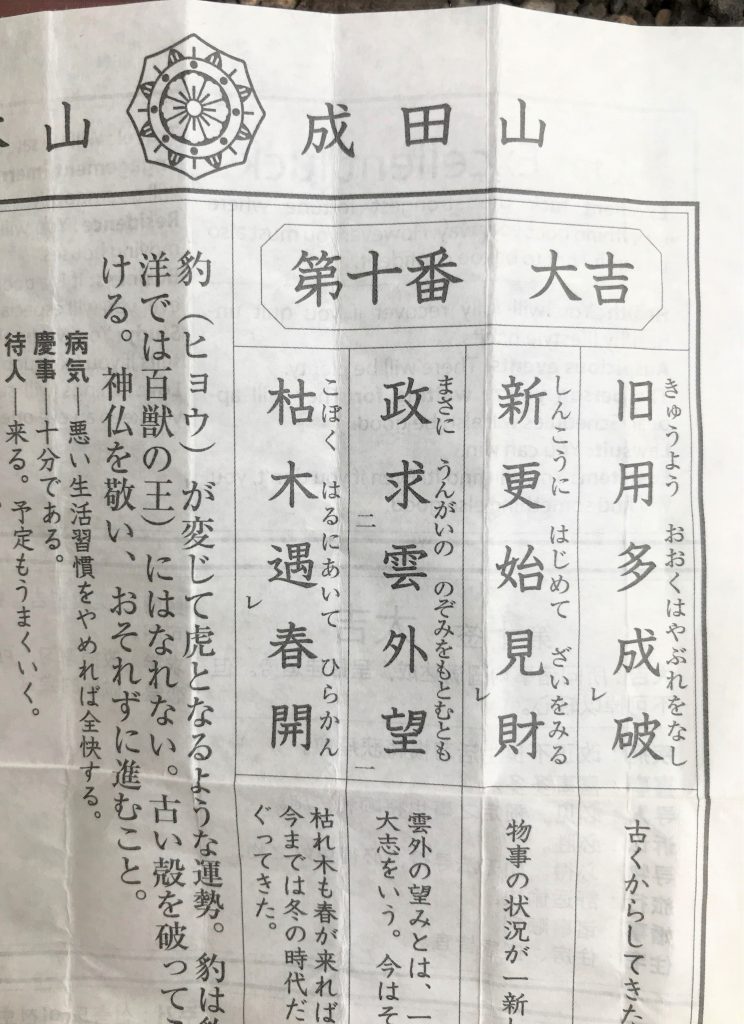 山 成田山
第十番 大吉
きゅうよう おおくはやぶれをなし
旧用多成レ破
古くからしてきた
しんこうに はじめて ざいをみる
新更始見レ財
物事の状況が一新
まさに うんがいの のぞみをもとむとも
政求二雲外望一
雲外の望みとは、一
大志をいう。今はそ
こぼく はるにあいて ひらかん
枯木遇レ春開
枯れ木も春が来れば
今までは冬の時代だ
ぐってきた。
豹（ヒョウ）が変じて虎となるような運勢。豹は
洋では百獣の王）にはなれない。古い殻を破ってこ
ける。神仏を敬い、おそれずに進むこと。
病気―悪い生活習慣をやめれば全快する。
慶事―十分である。
待人―来る。予定もうまくいく。